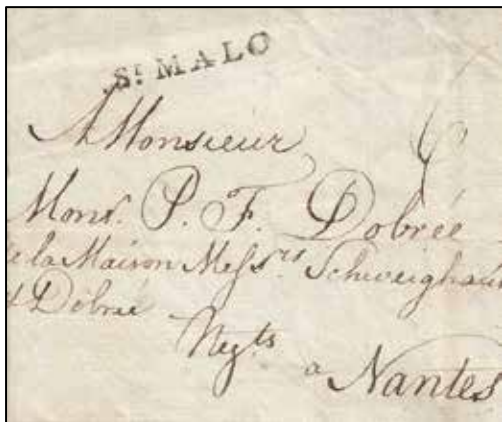 St MALO
A Monsieur
Monsr. P. F. Dobrée
de la Maison Messrs Schweighau
& Dobrée
Negts
a Nantes